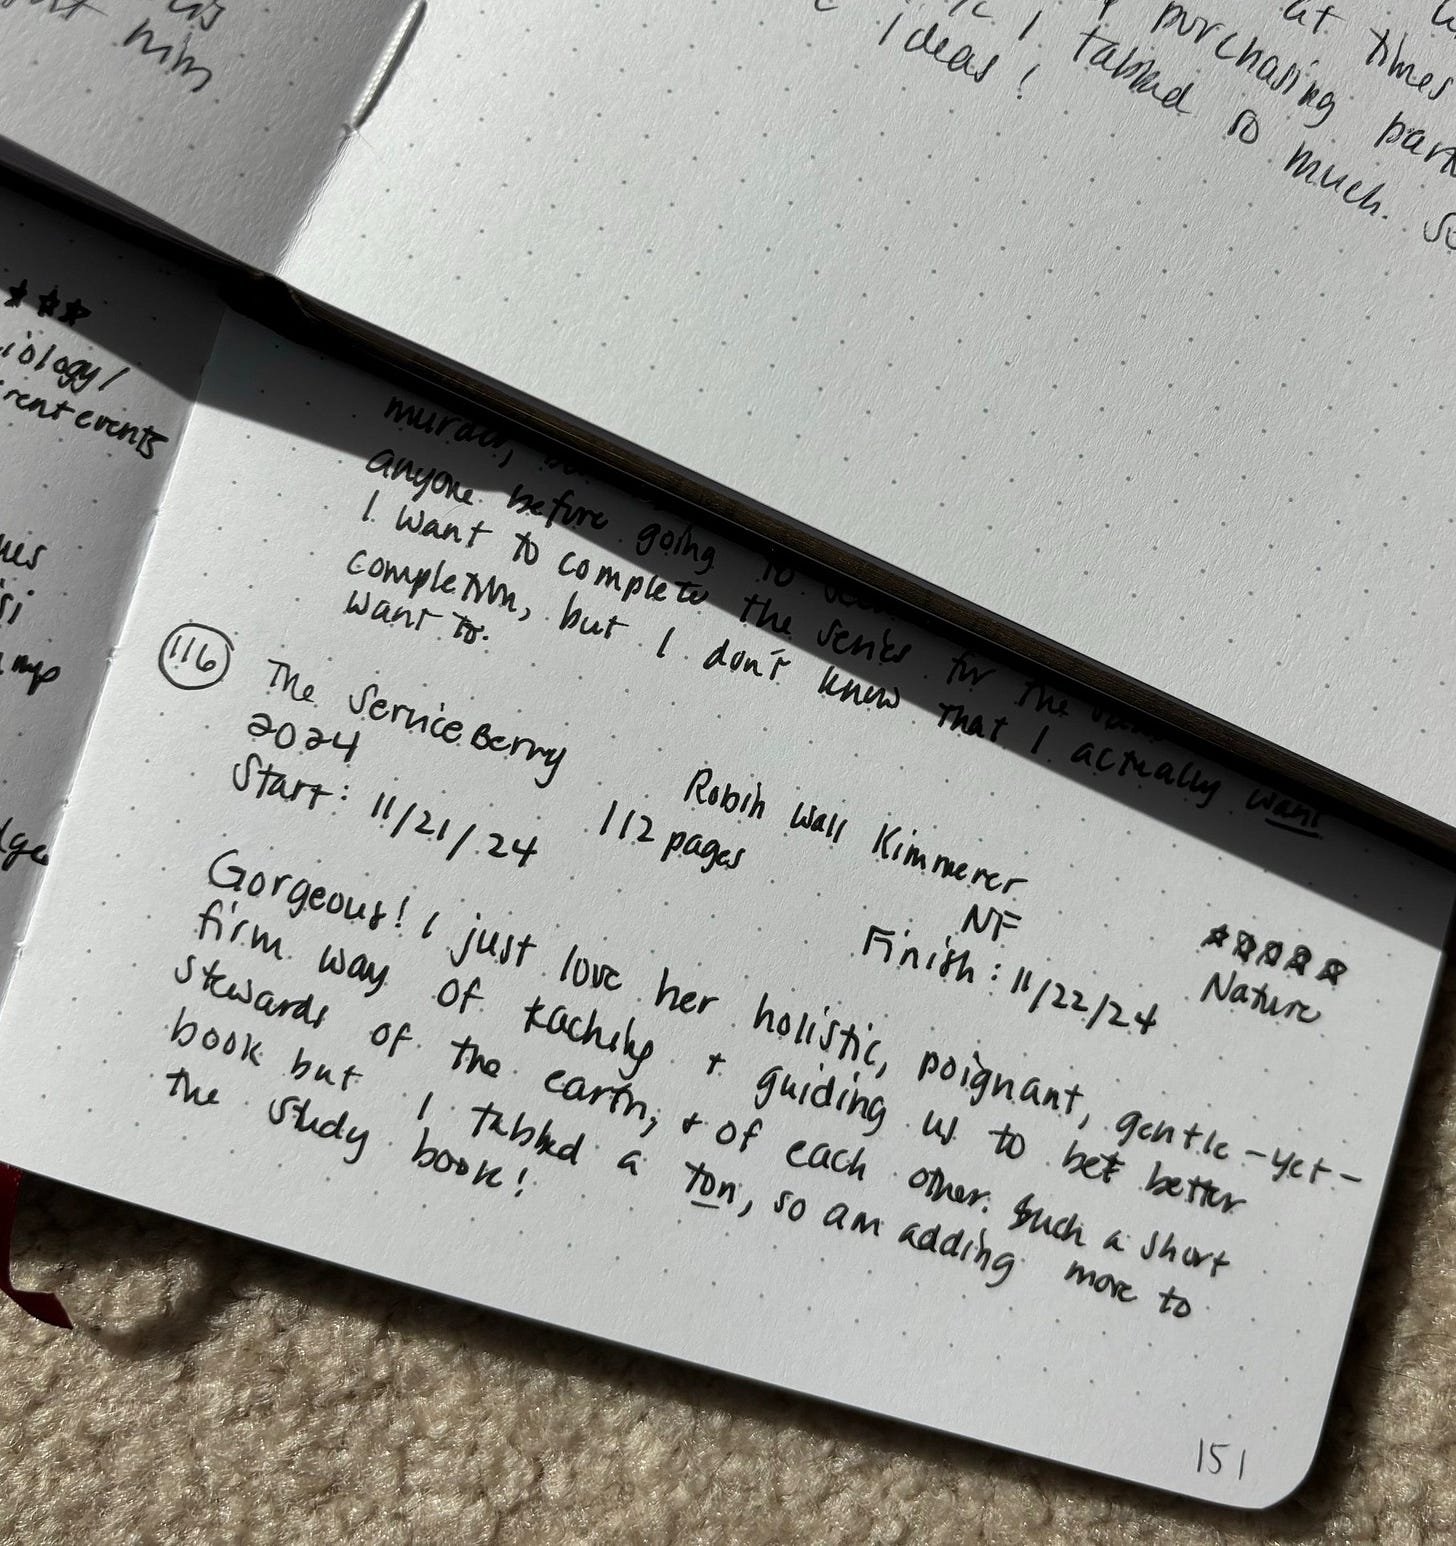 him
at times
purchasing
I tabbed so much.
ideas!
iology/
rent events
murder,
anyone before going to
I want to complete the series for the
completion, but I don't know that I actually want
want to.
116 The ServiceBerry Robin Wall Kimmerer
2024 112 pages NF Nature
Start: 11/21/24 Finish: 11/22/24
Gorgeous! I just love her holistic, poignant, gentle-yet-
firm way of teaching + guiding us to bet better
stewards of the earth, + of each other. Such a short
book but I tabbed a ton, so am adding more to
the study book!
151